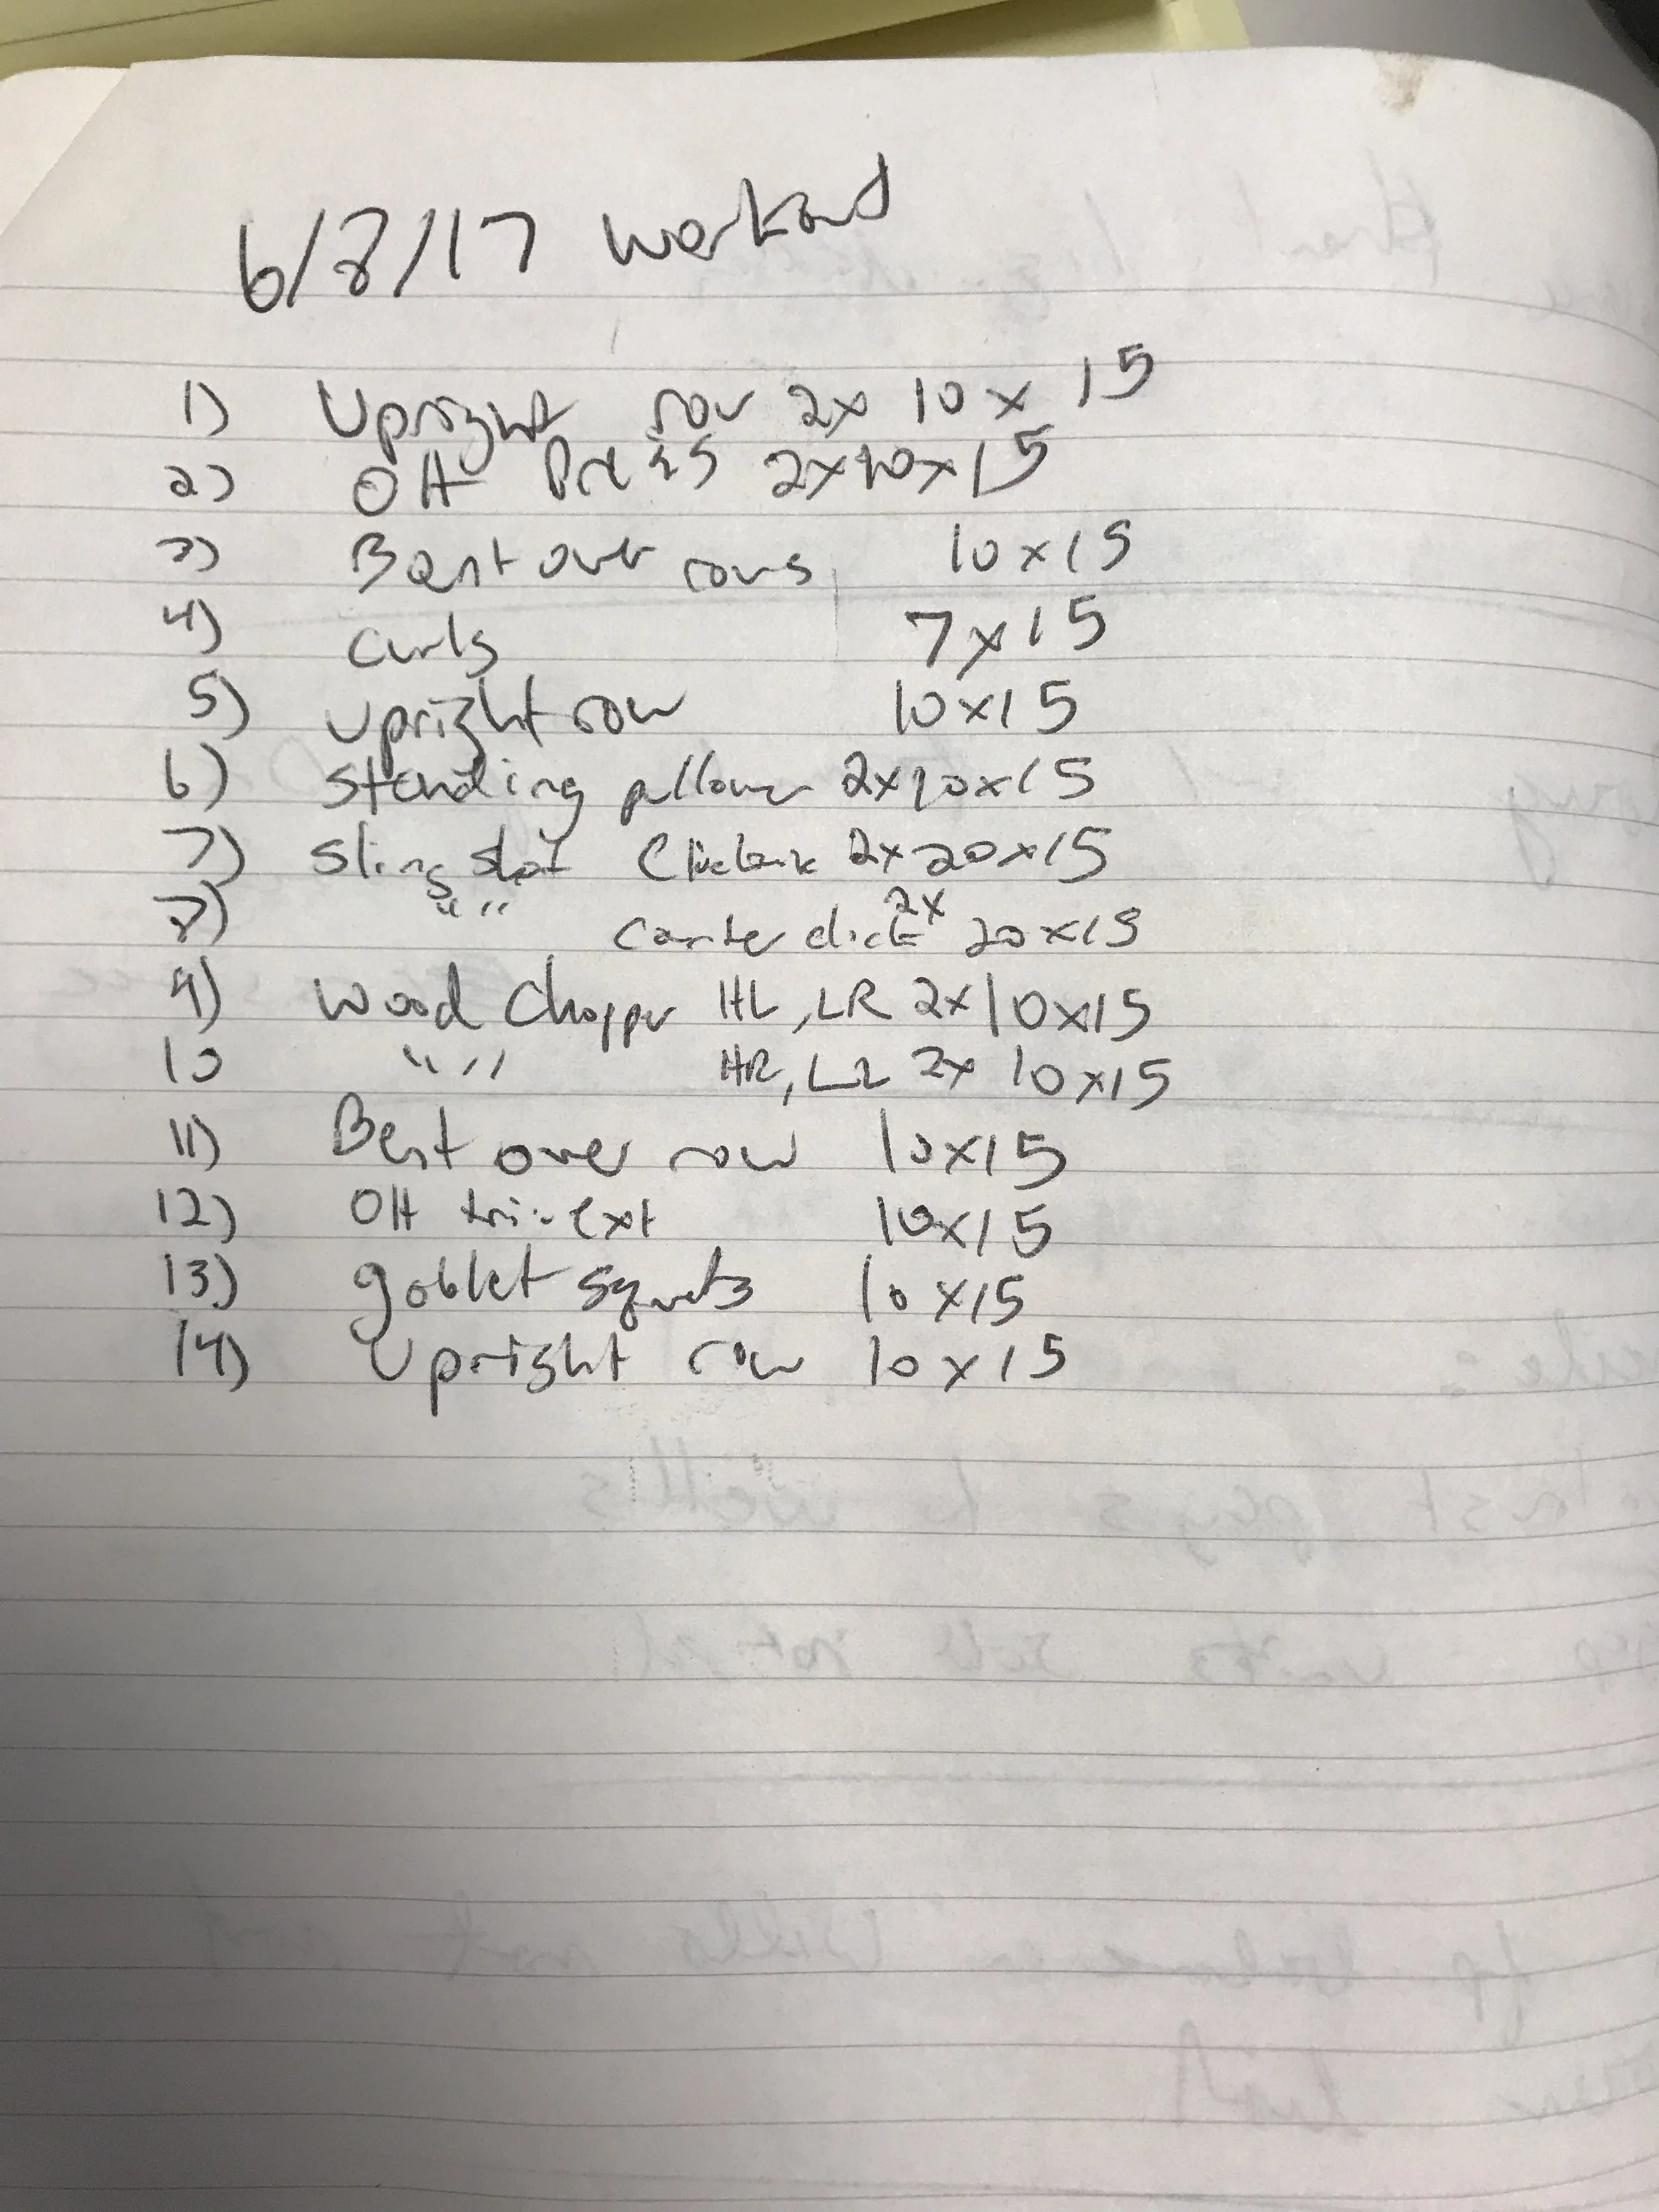 6/8/17 workout
1) Upright row 2x 10 x 15
2) OH Press 2x10x15
3) Bent over rows 10x15
4) Curls 7x15
5) Upright row 10x15
6) Standing pullover 2x10x15
7) Sling shot Clockwise 2x20x15
8) " " Counter clock 2x 20x15
9) Wood Chopper HL, LR 2x10x15
10 " " HR, LL 2x 10x15
11) Bent over row 10x15
12) OH tri-ext 10x15
13) goblet squats 10x15
14) Upright row 10x15